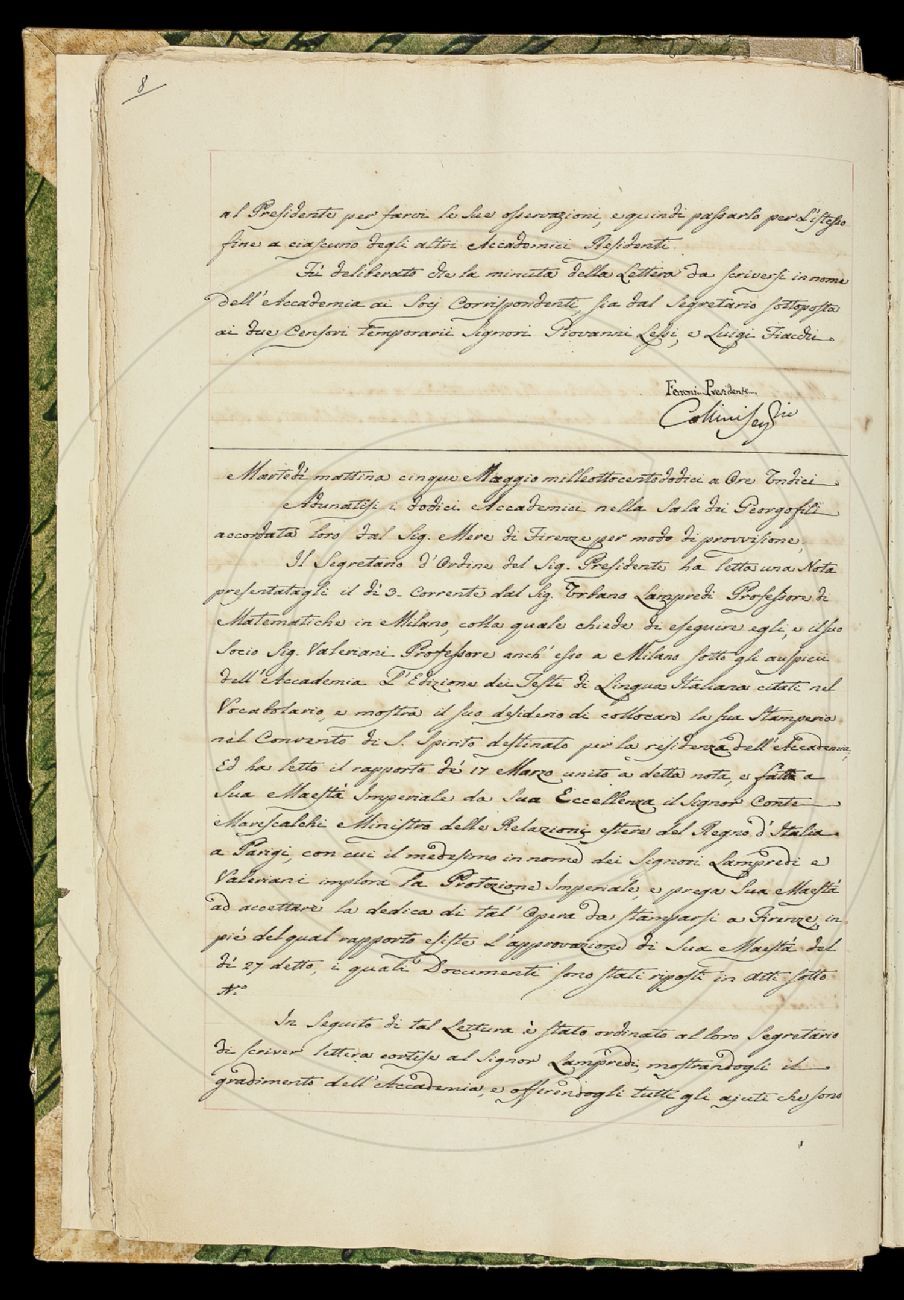 8
al Presidente per farvi le sue osservazioni, e quindi passarlo per l'istesso
fine a ciascuno degli altri Accademici Residenti
Fù deliberato che la minuta della Lettera da scriversi in nome
dell'Accademia ai Socj Corrispondenti, sia dal Segretario sottoposta
ai due Censori temporarii Signori Giovanni Lessi, e Luigi Fiacchi.
Ferroni Presidente
Collini Seg.rio
Martedì mattina cinque Maggio milleottocentododici a Ore Undici
Adunatisi i dodici Accademici nella Sala dei Georgofili
accordata loro dal Sig. Mere di Firenze per modo di provvisione,
Il Segretario d'Ordine del Sig. Presidente ha letta una Nota
presentatagli il dì 3. Corrente dal Sig. Urbano Lampredi Professore di
Matematiche in Milano, colla quale chiede di eseguire egli, e il suo
Socio Sig. Valeriani Professore anch'esso a Milano sotto gli auspicii
dell'Accademia L'Edizione dei Testi di Lingua Italiana citati nel
Vocabolario, e mostra il suo desiderio di collocare la sua Stamperia
nel Convento di S. Spirito destinato per la residenza dell'Accademia,
Ed ha letto il rapporto de' 17 Marzo unito a detta nota, e fatto a
Sua Maestà Imperiale da Sua Eccellenza il Signor Conte
Marescalchi Ministro delle Relazioni estere del Regno d'Italia
a Parigi, con cui il medesimo in nome dei Signori Lampredi e
Valeriani implora la Protezione Imperiale, e prega Sua Maestà
ad accettare la dedica di tal' Opera da stamparsi a Firenze, in
piè del qual rapporto esiste l'approvazione di Sua Maestà del
dì 27 detto, i quali Documenti sono stati riposti in atti sotto
N.°
In Seguito di tal Lettura è stato ordinato al loro Segretario
di scriver lettera cortese al Signor Lampredi, mostrandogli il
gradimento dell'Accademia, e offerendogli tutti gli ajuti che sono